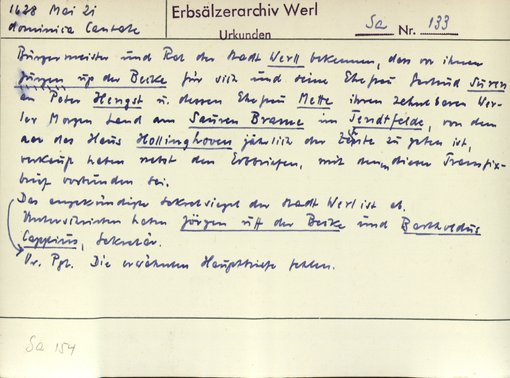 1628 Mai 21
dominica Cantate
Erbsälzerarchiv Werl
Urkunden
Sa Nr. 133
Bürgermeister und Rat der Stadt Werll bekennen, dass vor ihnen
Jürgen up der Beike für sich und seine Ehefrau Gertrud
an Peter Hengst u. dessen Ehefrau Mette ihren zehntbaren Wer-
ler Morgen Land am Sauren Brame im Tendtfelde, von dem
nur das Haus Hollinghoven jährlich der Zehnte zu geben ist,
verkauft haben nebst den Erbbriefen, mit denen dieser Transfix-
brief verbunden sei.
Das angekündigte Sekretsiegel der Stadt Werl ist ab.
Unterschrieben haben Jörgen uff der Beike und Bartholdus
Cappius, Sekretär.
Or. Pgt. Die erwähnten Hauptbriefe fehlen.
Sa 154